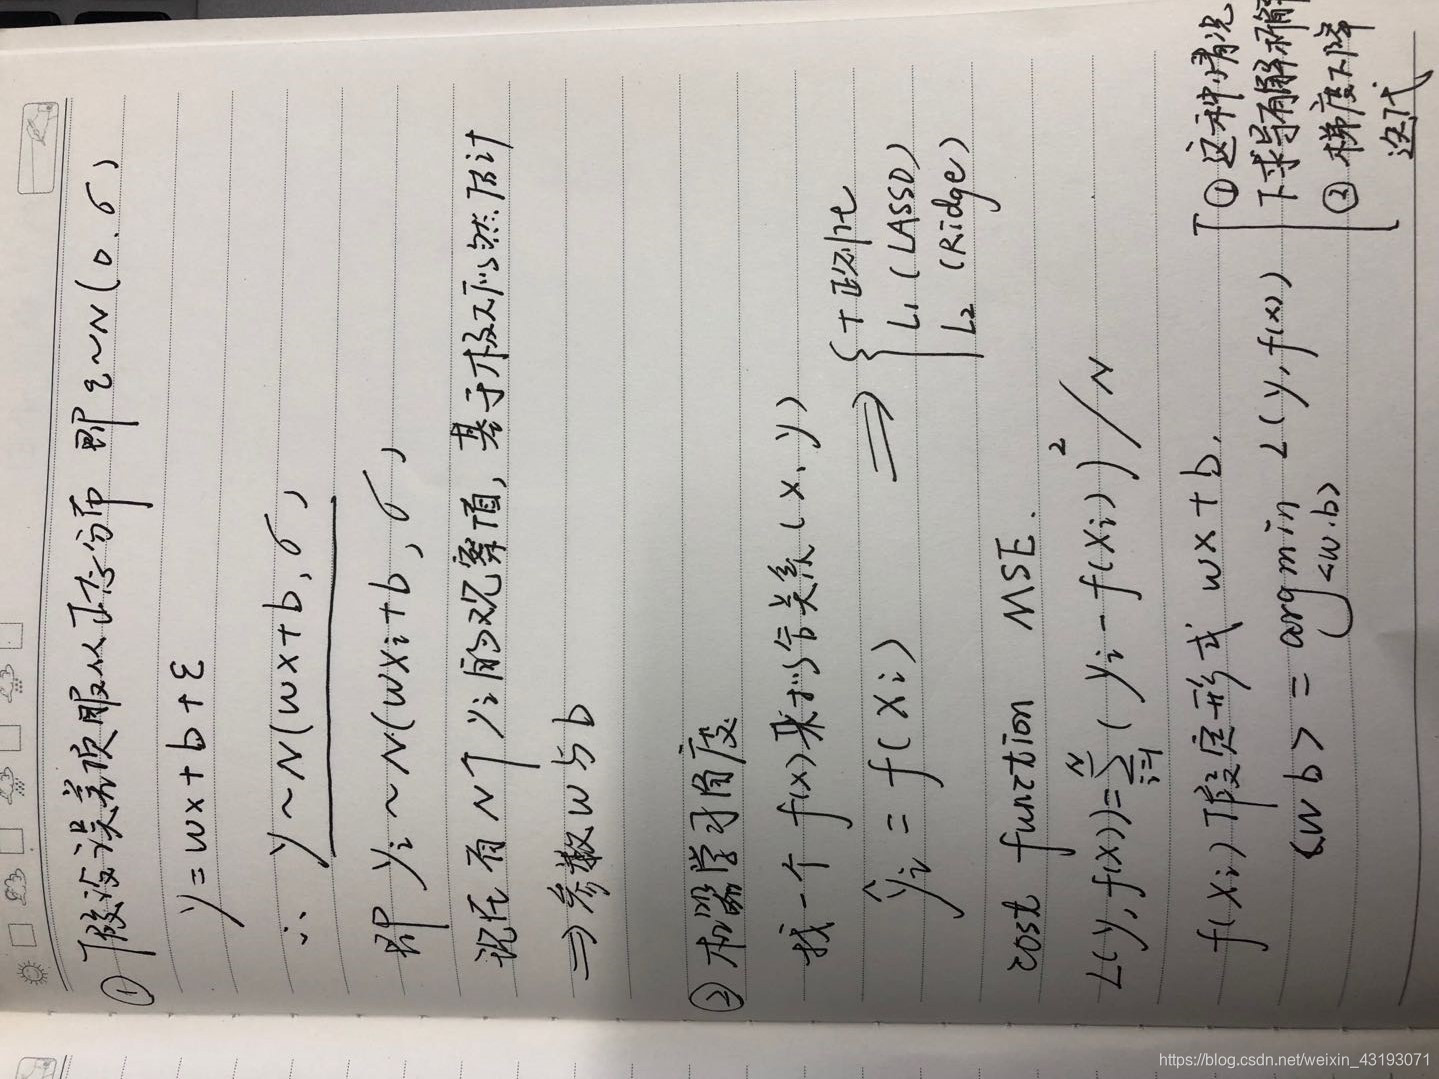 ① 假设误差项服从正态分布 即 ε~N(0.σ)
y=wx+b+ε
∴ y~N(wx+b,σ)
即 yi~N(wxi+b,σ)
现在有N个yi的观察值,基于极大似然估计
⇒参数w与b
② 机器学习角度
找一个f(x)来拟合关系(x,y)
ŷi = f(xi) ⇒ { +正则化
L1 (LASSO)
L2 (Ridge)
cost function MSE.
L(y,f(x))=∑i=1N (yi-f(xi))²/N
f(xi)假定形式 wx+b,
<w b> = argmin<w.b> L(y,f(x))
① 这种情况
下求导有解析解
② 梯度下降
迭代
https://blog.csdn.net/weixin_43193071